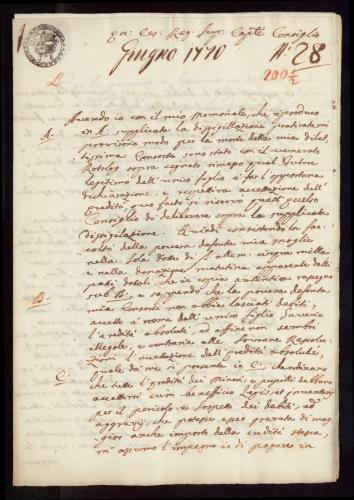 Giugno 1770
N.º 28
200 2/2
A.
Avendo io con il mio memoriale, che riproduco
in A supplicata la dissigillazione praticatami
provisorio modo per la morte della mia dilet
tissima Consorte sono stato con il venerato
Rotolo sopra segnato rimesso qual Tutore
legitimo dell'unico figlio à far l'opportuna
dichiarazione, e respettiva accettazione dell'
eredità, quo facto si riservò questo
Consiglio di deliberare sopra la supplicata
dissigilazione. Quindi consistendo la fa-
coltà della povera defonta mia moglie
nella sola dote di f. allem: cinque milla
e nella donazione matutina apparente dalli
patti dotali, che in copia autentica rassegno
B.
sub B, e sapendo che la povera defonta
mia Consorte non abbia lasciati debiti,
accetto à nome dell'unico figlio
l'eredità absolutè, ed affine non sembri
illegale, e contraria alle Sovrane Resolu
zioni l'accettazione dell'eredità absolutè,
C.
quale dà me si presenta in C. che ordinano
che tutte l'eredità dei Minori, e pupilli debbano
accettarsi cum beneficio Legis, et Inventarij
per il pericolo, e sospetto dei debiti, ed
aggravj, che potesse esser gravata di mag
gior anche importo della eredità stessa,
m'assumo l'impegno io di pagare in